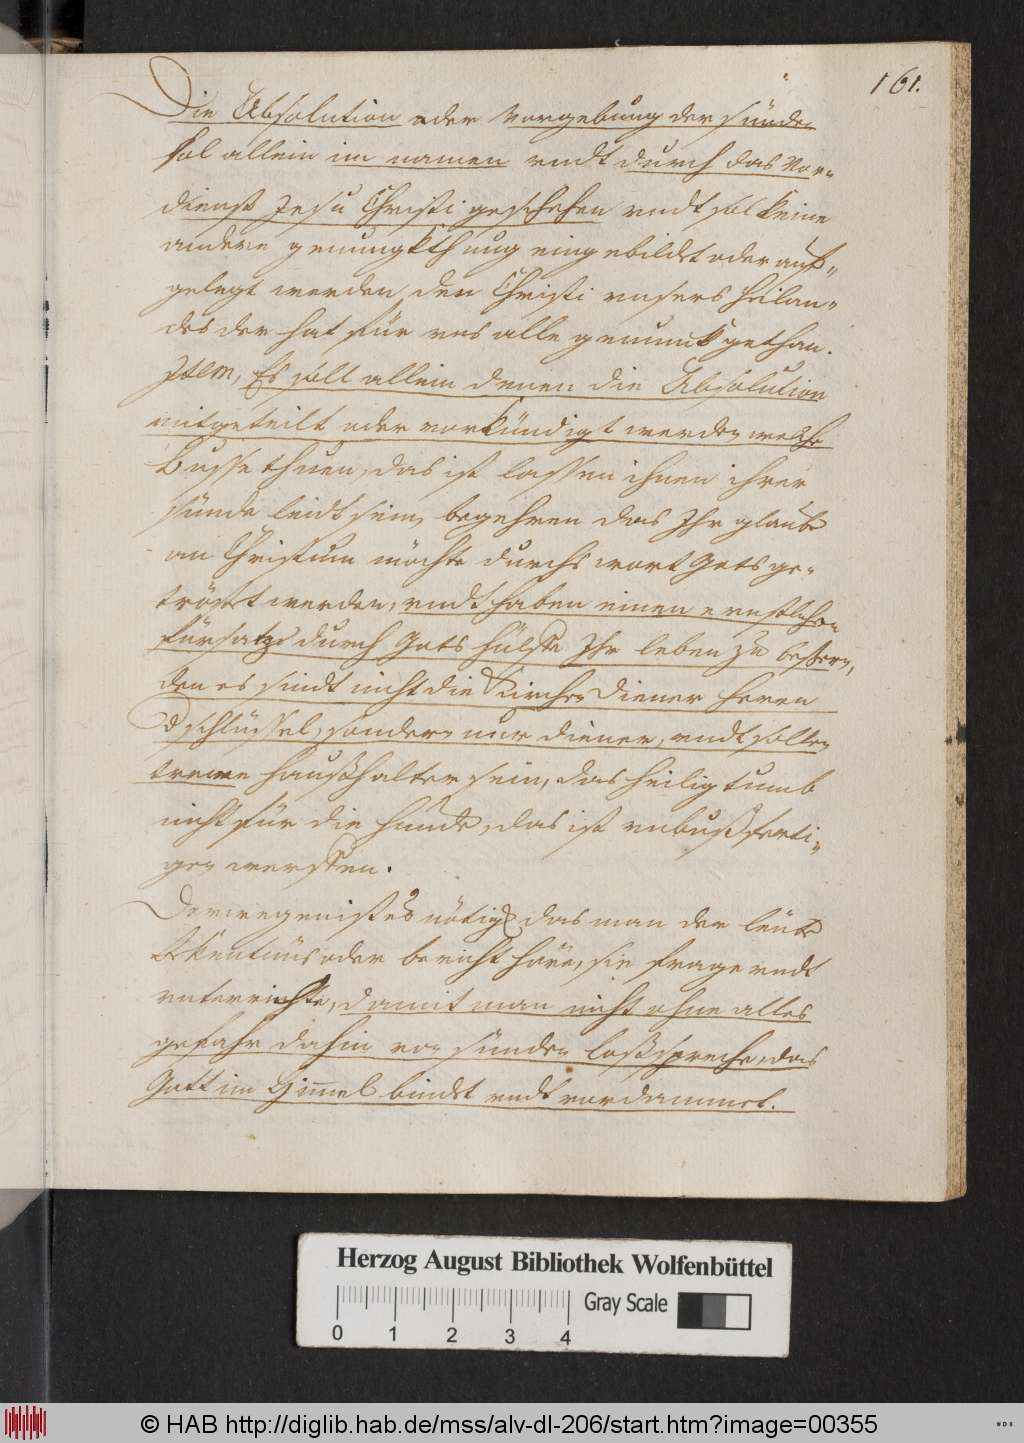 161.
Die Absolution oder vorgebung der sünden
sol allein im namen undt durch das vor„
dienst Jesu Christi geschehen undt sol keine
andere genungkthuung eingebildet oder auf„
gelegt werden, den Christi unsers heilan„
des der hat für uns alle genunck gethan.
Item, Es soll allein denen die Absolution
mitgeteilt oder vorkündigt werden welche
Busse thuen, das ist lassen ihnen ihrer
sünde leidt sein, begehren das Ihr glaube
an Christum möchte durchs wort Gots ge„
tröstet werden, undt haben einen ernstlichen
fürsatz durch Gots hülffe Ihr leben zu bessern,
den es sindt nicht die Kirchen Diener heren
d schlüssel, sondern nur diener, undt sollen
trewe haußhalter sein, das heiligtumb
nicht für die hunde, das ist unbußferti„
gen werffen.
Derwegen ist es nötig das man der leute
Bekentnüs oder bericht höre, sie frage undt
unterrichte, damit man nicht ohne alles
gefahr dahin von sünden loßspreche, das
Gott im Himmel bindet undt vordammet.
Herzog August Bibliothek Wolfenbüttel
Gray Scale
0 1 2 3 4
© HAB http://diglib.hab.de/mss/alv-dl-206/start.htm?image=00355